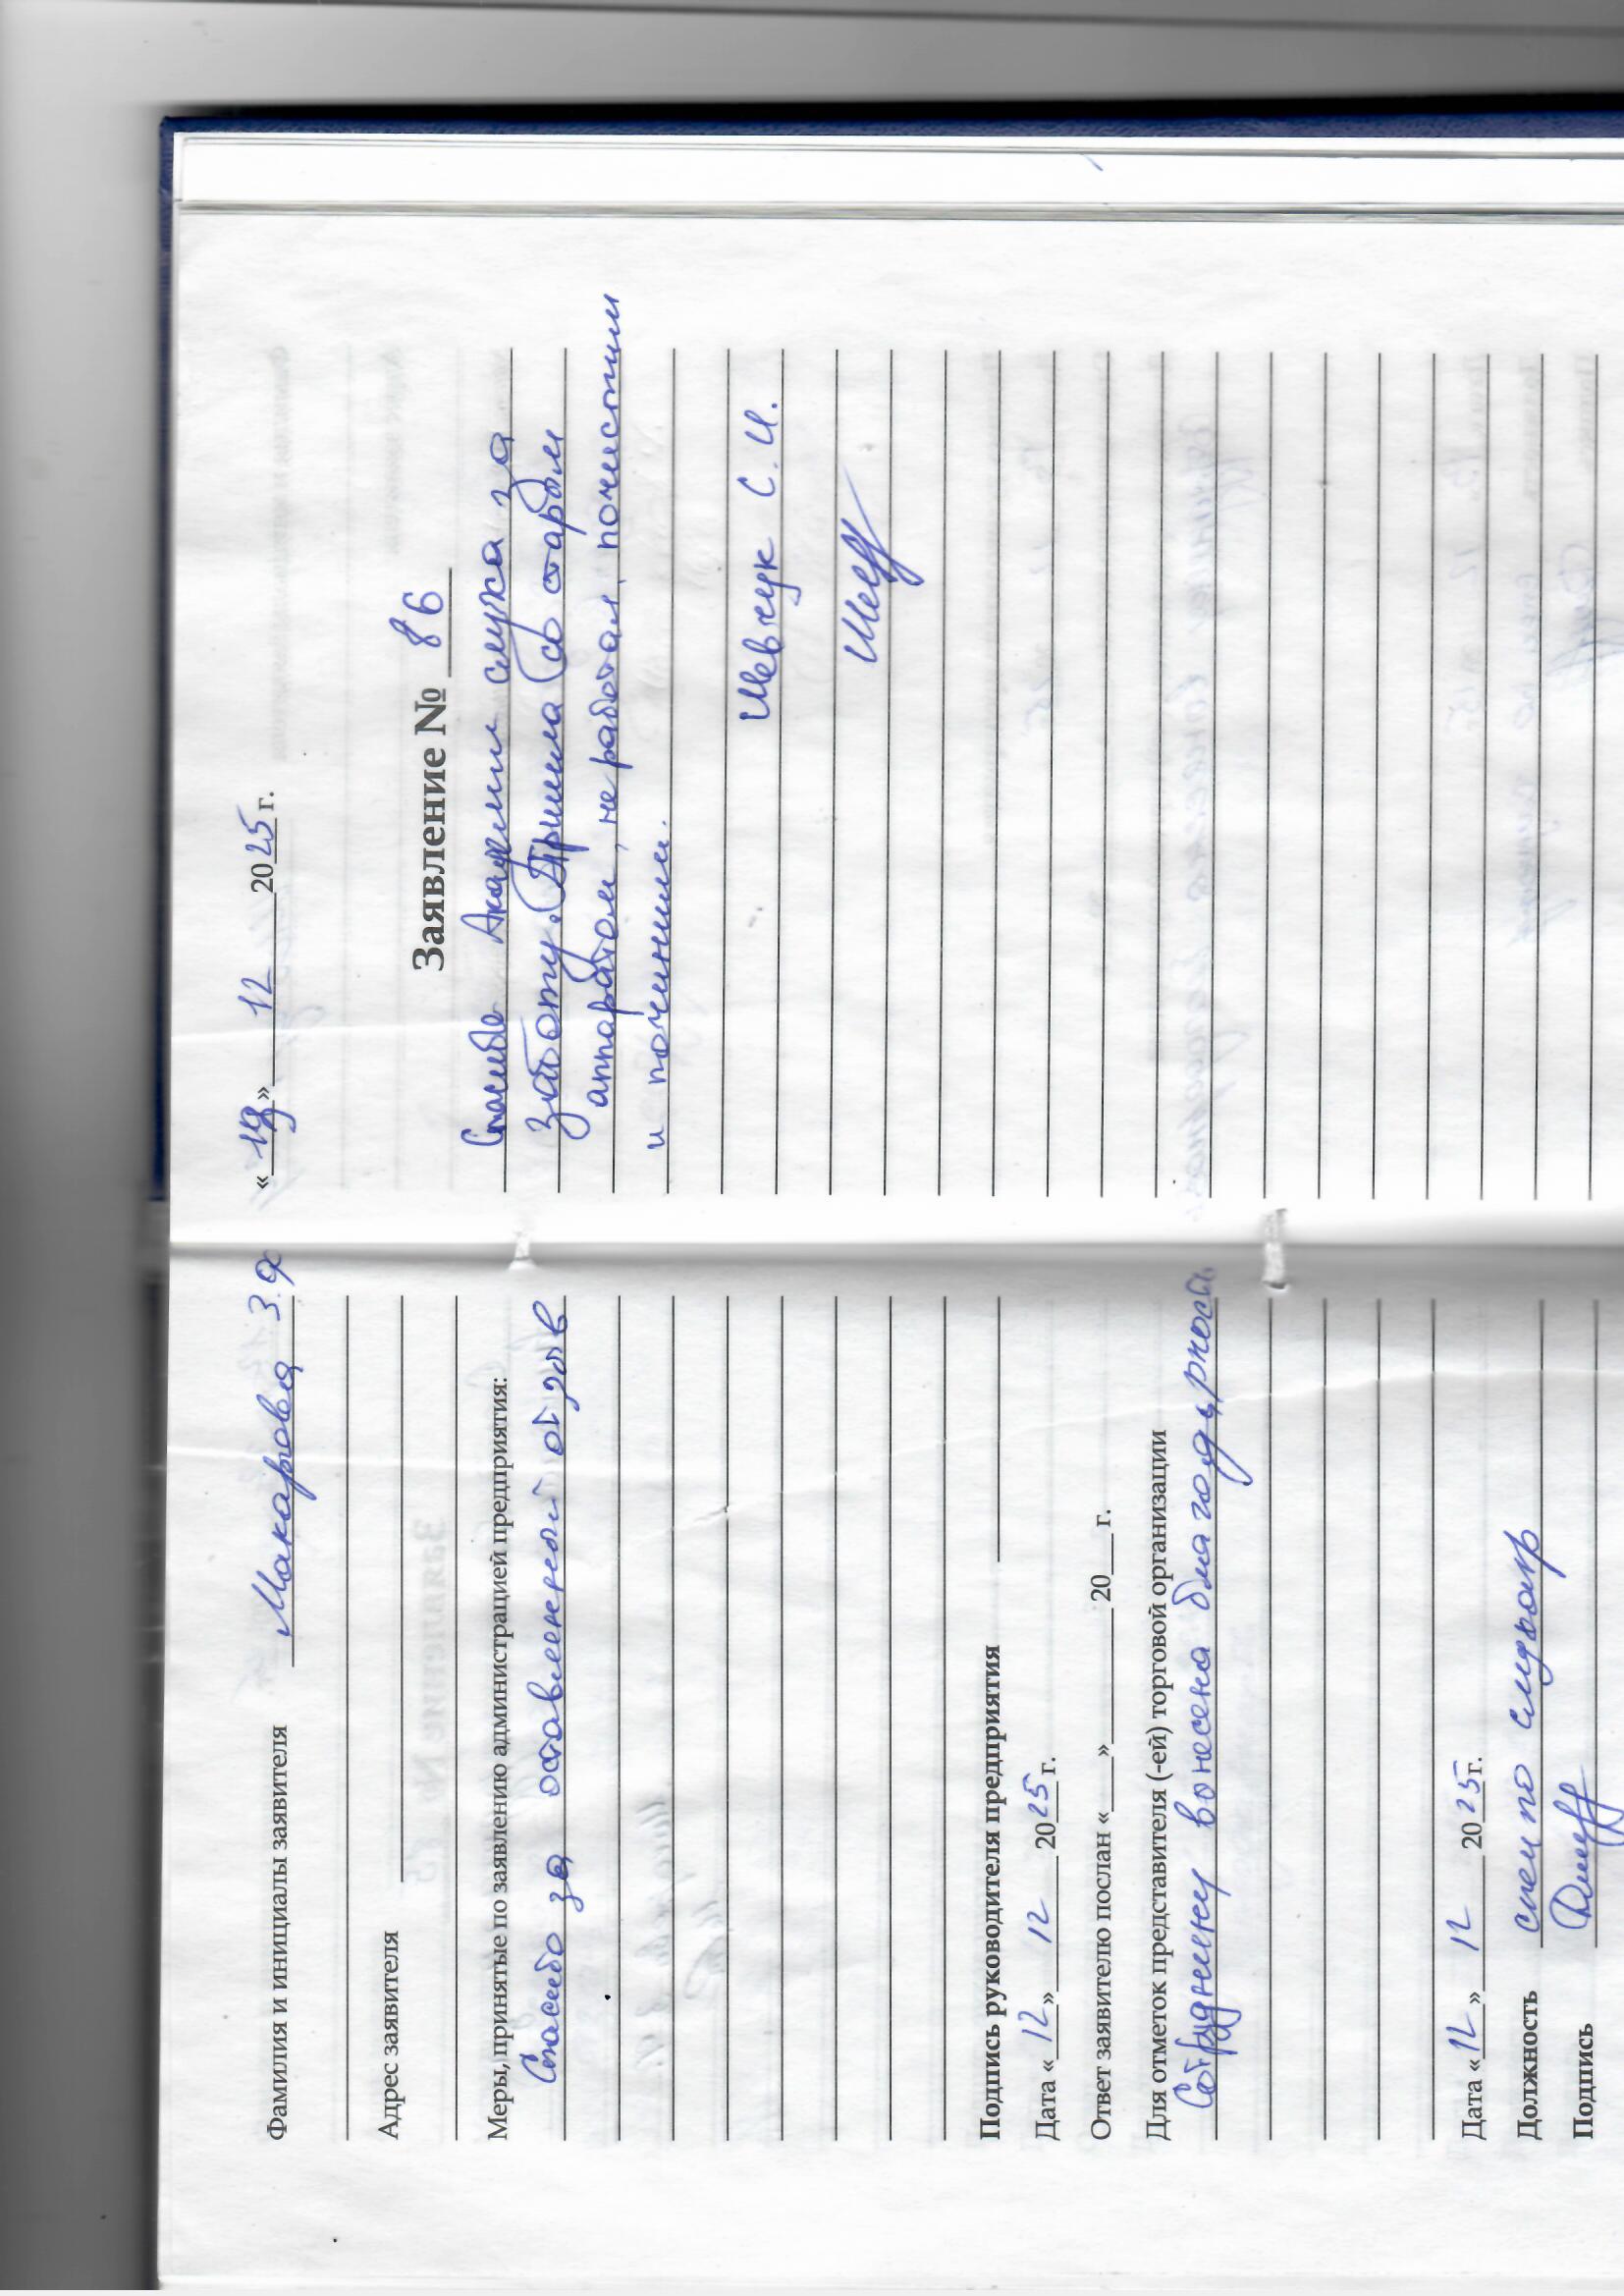 Фамилия и инициалы заявителя Макарова З.Я
Адрес заявителя
Меры, принятые по заявлению администрацией предприятия:
Спасибо за оставленный отзыв
Подпись руководителя предприятия
Дата «12» 12 2025 г.
Ответ заявителю послан «__» ____ 20__ г.
Для отметок представителя (-ей) торговой организации
Сотруднику вонесена благодарность.
Дата «12» 12 2025 г.
Должность спец по слуху
Подпись
«19» 12 2025 г.
Заявление № 86
Спасибо Академии слуха за
заботу. Пришла со старым
аппаратом, не работал, почистили
и починили.
Шевчук С. И.